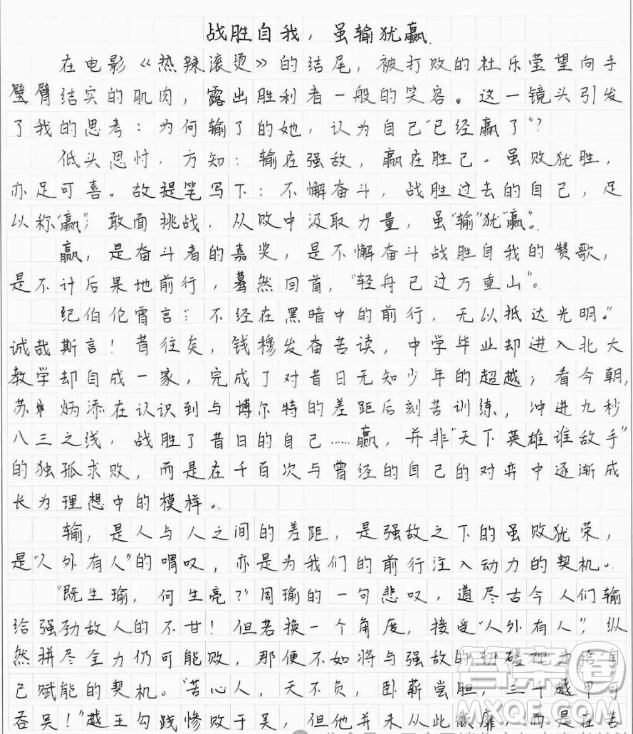 战胜自我，虽输犹赢.
在电影《热辣滚烫》的结尾，被打败的杜乐莹望向手
璧臂结实的肌肉，露出胜利者一般的笑容。这一镜头引发
了我的思考：为何输了的她，认为自己"已经赢了"？
低头思忖，方知：输在强敌，赢在胜己。虽败犹胜，
亦足可喜。故提笔写下：不懈奋斗，战胜过去的自己，足
以称"赢"；敢面挑战，从败中汲取力量，虽"输"犹"赢"。
赢，是奋斗者的嘉奖，是不懈奋斗战胜自我的赞歌，
是不计后果地前行，蓦然回首，"轻舟已过万重山"。
纪伯伦曾言："不经在黑暗中的前行，无以抵达光明。"
诚哉斯言！昔往矣，钱穆发奋苦读，中学毕业却进入北大
教学却自成一家，完成了对昔日无知少年的超越；看今朝，
苏炳添在认识到与博尔特的差距后刻苦训练，冲进九秒
八三之线，战胜了昔日的自己……赢，并非"天下英雄谁敌手"
的独孤求败，而是在千百次与曾经的自己的对弈中逐渐成
长为理想中的模样。
输，是人与人之间的差距，是强敌之下的虽败犹荣，
是"人外有人"的喟叹，亦是为我们的前行注入动力的契机。
"既生瑜，何生亮？"周瑜的一句悲叹，道尽古今人们输
给强劲敌人的不甘！但若换一个角度，接受"人外有人"，纵
然拼尽全力仍可能败，那便不如将与强敌的切磋视为给自
己赋能的契机。"苦心人，天不负，卧薪尝胆，三千越甲可
吞吴！"越王勾践惨败于吴，但他并未从此
MXQE.COM